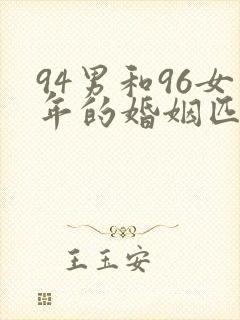 94男和96女
年的婚姻匹
王玉安